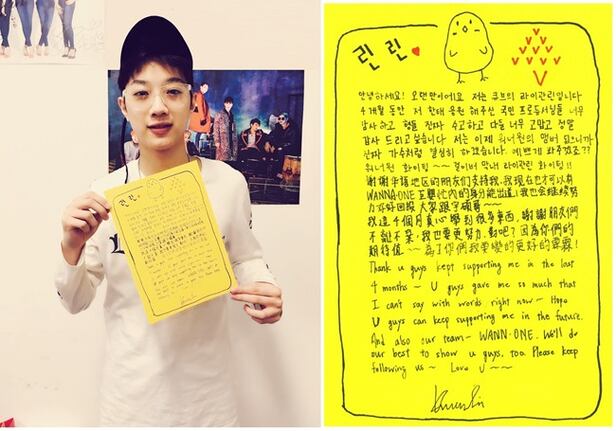 린린
안녕하세요! 오랜만이에요 저는 큐브의 라이관린입니다
4개월 동안 저 한테 응원 해주신 국민 프로듀서님들 너무
감사 하고 형들 진짜 수고하고 다들 너무 고맙고 정말
감사 드리고 싶습니다. 저는 이제 워너원의 멤버 됐니까
진짜 가수처럼 열심히 하겠습니다 예쁘게 봐주겠죠??
워너원 화이팅 ~~ 걸이버 막내 라이관린 화이팅!!
謝謝華語地区的朋友们支持我.我現在也才可以有
WANNA·ONE 的身分能出道!我也会継続努
力好好回饋大家
我這4個月真心學到很多東西.謝謝朋友們
不離不棄.我也要更努力.對吧?因為你們的
期待值~~為了你們我要變的更好的霖霖!
Thank u guys kept supporting me in the last
4 months~ U guys gave me so much that
I can't say with words right now~ Hope
U guys can keep supporting me in the future.
And also our team~ WANN·ONE. We'll do
our best to show u guys, too. Please keep
following us~ Love U~~